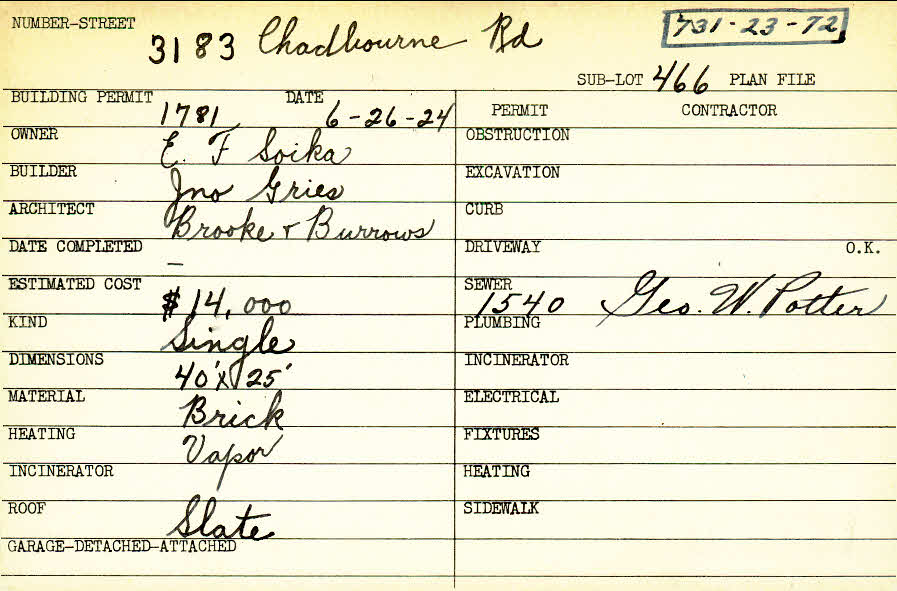 NUMBER-STREET 3183 Chadbourne Rd 731-23-72
SUB-LOT 466 PLAN FILE
BUILDING PERMIT 1781 DATE 6-26-24
PERMIT CONTRACTOR
OWNER E. F Soika
OBSTRUCTION
BUILDER Jno Gries
EXCAVATION
ARCHITECT Brooke & Burrows
CURB
DATE COMPLETED –
DRIVEWAY O.K.
ESTIMATED COST $14,000
SEWER 1540 Geo. W. Potter
KIND Single
PLUMBING
DIMENSIONS 40'x25'
INCINERATOR
MATERIAL Brick
ELECTRICAL
HEATING Vapor
FIXTURES
INCINERATOR
HEATING
ROOF Slate
SIDEWALK
GARAGE-DETACHED-ATTACHED